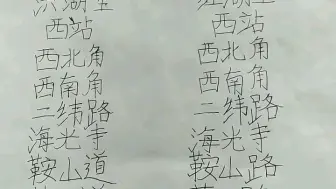 西站
西北角
西南角
二纬路
海光寺
鞍山道
西站
西北角
西南角
二纬路
海光寺
鞍山路